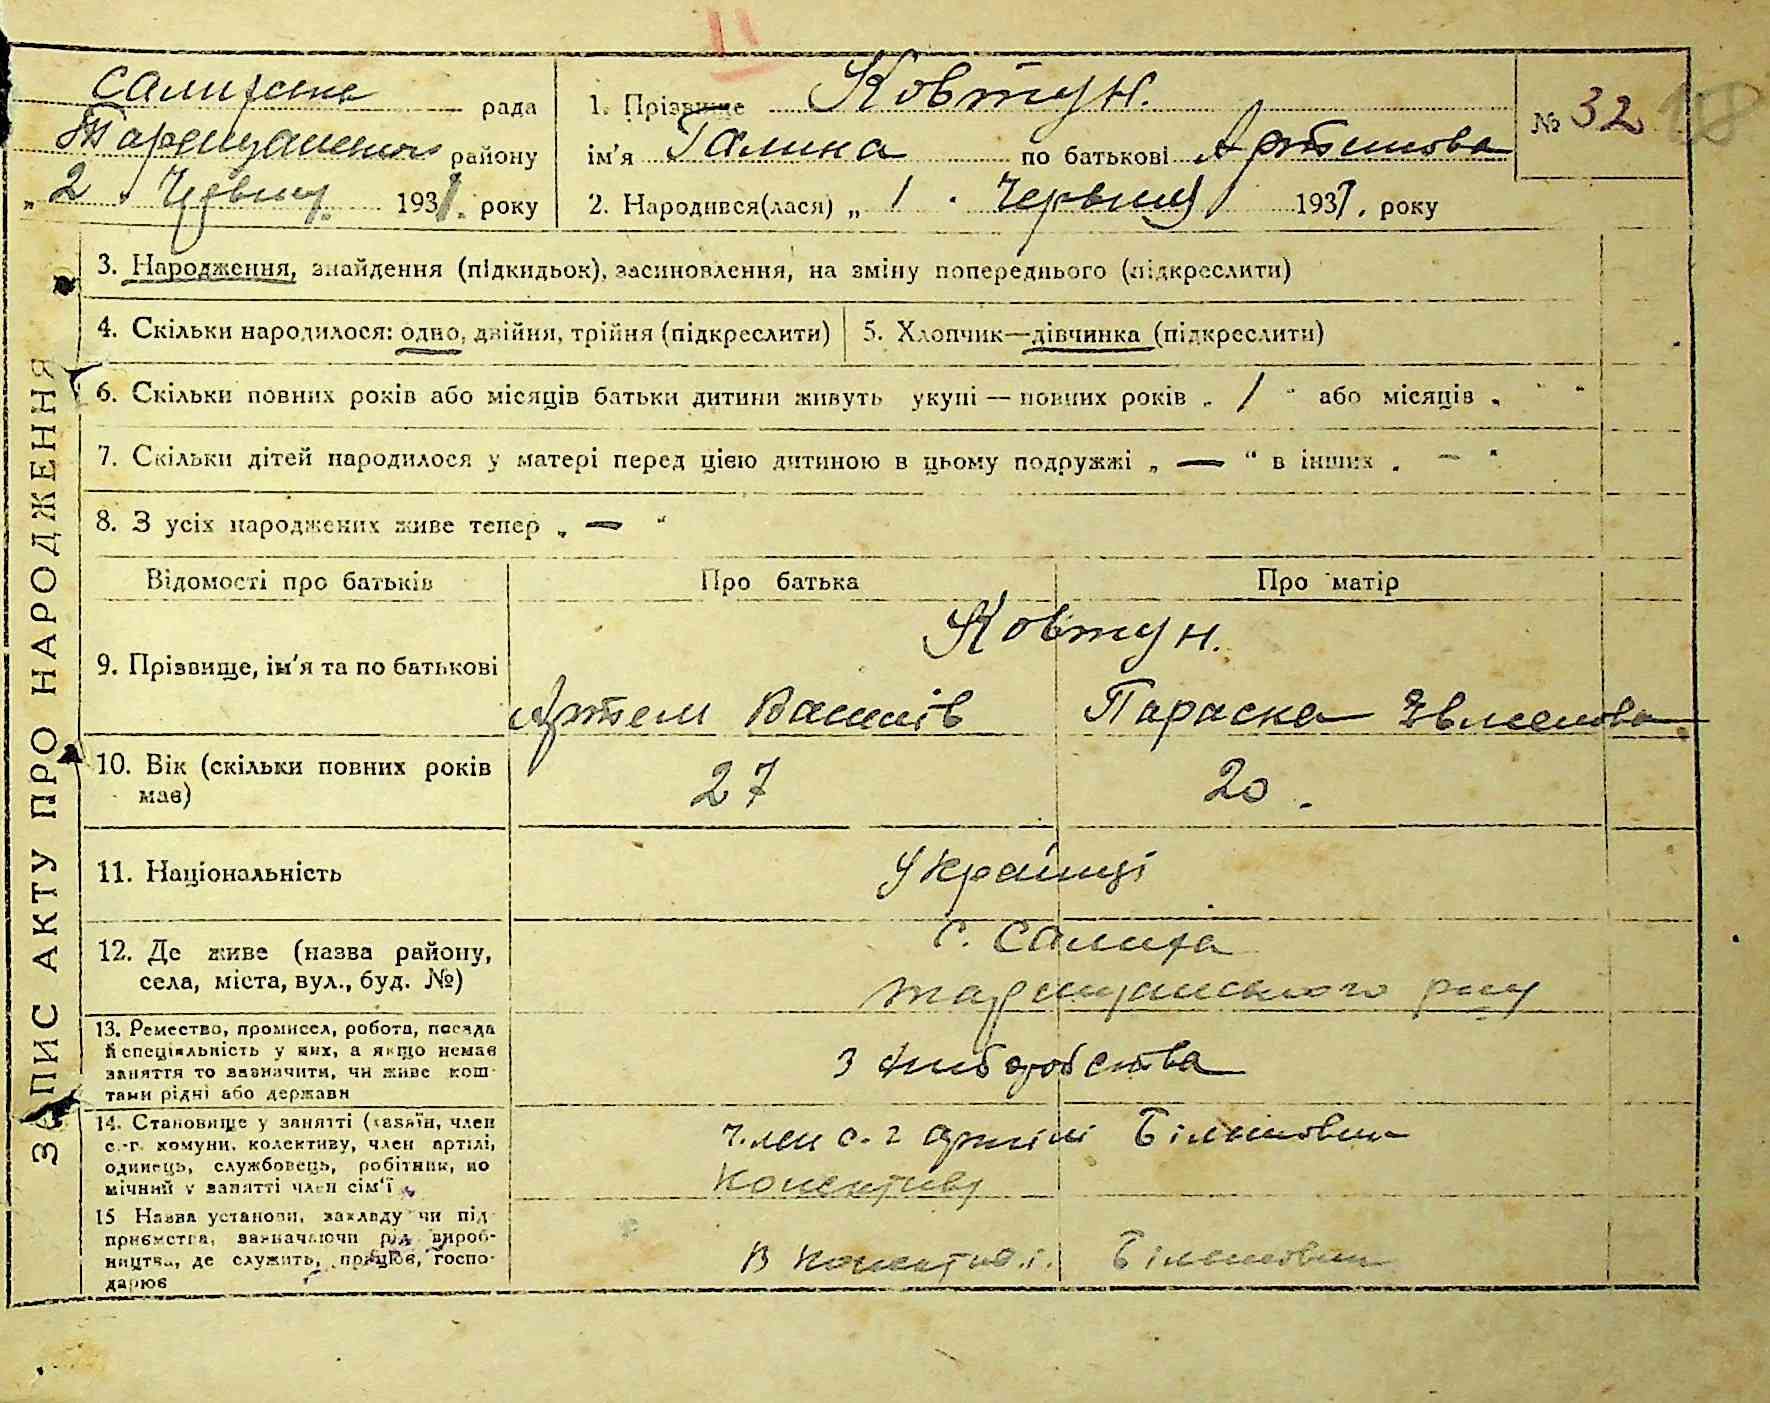 Салиська рада
Таращанського району
„ 2 „ Червня 1931. року
1. Прізвище Ковтун.
ім'я Галина по батькові Артемова
2. Народився(лася) „ 1 . Червня 1931. року
№ 32
ЗАПИС АКТУ ПРО НАРОДЖЕННЯ
3. Народження, знайдення (підкидьок), засиновлення, на зміну попереднього (підкреслити)
4. Скільки народилося: одно, двійня, трійня (підкреслити)
5. Хлопчик—дівчинка (підкреслити)
6. Скільки повних років або місяців батьки дитини живуть укупі — повних років „ 1 " або місяців „ "
7. Скільки дітей народилося у матері перед цією дитиною в цьому подружжі „ — “ в інших „ — "
8. З усіх народжених живе тепер „ — “
Відомості про батьків Про батька Про матір
9. Прізвище, ім'я та по батькові
Ковтун.
Артем Васил­ів Параска
10. Вік (скільки повних років має)
27 20.
11. Національність
Українці
12. Де живе (назва району,
села, міста, вул., буд. №)
с. Салиха
Таращанського р-ну
13. Ремество, промисел, робота, посада
й спеціяльність у них, а якщо немає
заняття то зазначити, чи живе кош-
тами рідні або держави
З хліборобства
14. Становище у занятті (хазяїн, член
с.-г. комуни, колективу, член артілі,
одинець, службовець, робітник, по
мічний у занятті член сім'ї
Член с.-г артілі Більшовик
Колективу
15 Назва установи, закладу чи під-
приємства, зазначаючи рід вироб-
ництва, де служить, працює, госпо-
дарює
В колективі. Більшовик